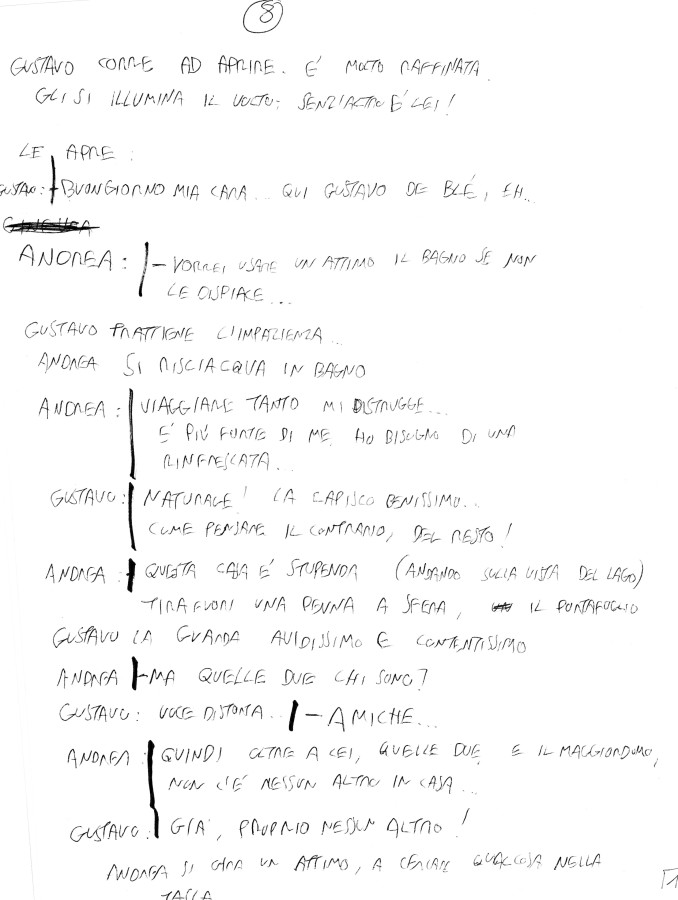 8
GUSTAVO CORRE AD APRIRE. E' MOLTO RAFFINATA.
GLI SI ILLUMINA IL VOLTO: SENZ'ALTRO E' LEI!
LE APRE:
GUSTAVO: - BUONGIORNO MIA CARA... QUI GUSTAVO DE BLÉ, EH...
ANDREA: - VORREI USARE UN ATTIMO IL BAGNO SE NON
LE DISPIACE...
GUSTAVO TRATTIENE L'IMPAZIENZA...
ANDREA SI RISCIACQUA IN BAGNO
ANDREA: VIAGGIARE TANTO MI DISTRUGGE...
E' PIÙ FORTE DI ME. HO BISOGNO DI UNA
RINFRESCATA...
GUSTAVO: NATURALE! LA CAPISCO BENISSIMO...
COME PENSARE IL CONTRARIO, DEL RESTO!
ANDREA: QUESTA CASA E' STUPENDA (ANDANDO SULLA VISTA DEL LAGO)
TIRA FUORI UNA PENNA A SFERA, IL PORTAFOGLIO
GUSTAVO LA GUARDA AVIDISSIMO E CONTENTISSIMO
ANDREA - MA QUELLE DUE CHI SONO?
GUSTAVO: VOCE DISTORTA... - AMICHE...
ANDREA: QUINDI OLTRE A LEI, QUELLE DUE E IL MAGGIORDOMO,
NON C'E' NESSUN ALTRO IN CASA...
GUSTAVO: GIA', PROPRIO NESSUN ALTRO!
ANDREA SI GIRA UN ATTIMO, A CERCARE QUALCOSA NELLA
TASCA